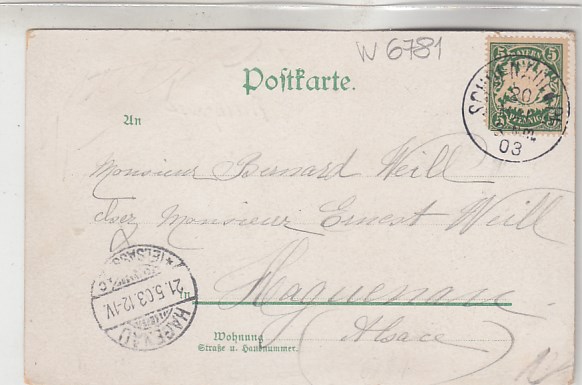 W 6781
Postkarte.
5 BAYERN 5
PFENNIG
20
03
An
Monsieur Bernard Weill
chez Monsieur Ernest Weill
(ELSASS)
21.5.03.12-1V.
HAGENAU
in
Haguenau
Wohnung
Straße u. Hausnummer.
(Alsace)